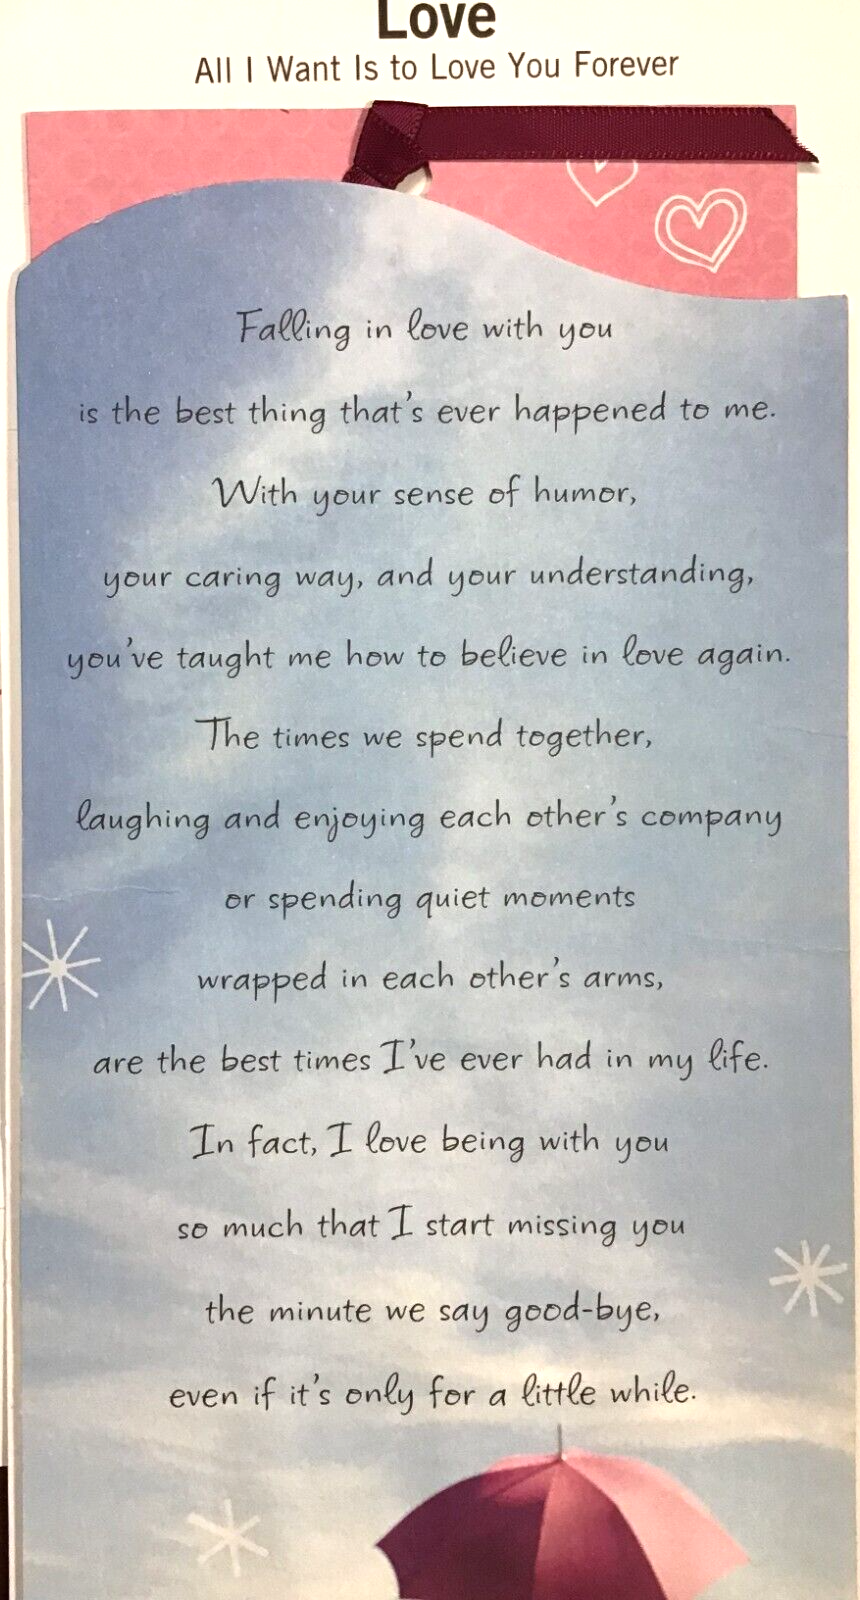 Love
All I Want Is to Love You Forever
Falling in love with you
is the best thing that's ever happened to me.
With your sense of humor,
your caring way, and your understanding,
you've taught me how to believe in love again.
The times we spend together,
laughing and enjoying each other's company
or spending quiet moments
wrapped in each other's arms,
are the best times I've ever had in my life.
In fact, I love being with you
so much that I start missing you
the minute we say good-bye,
even if it's only for a little while.